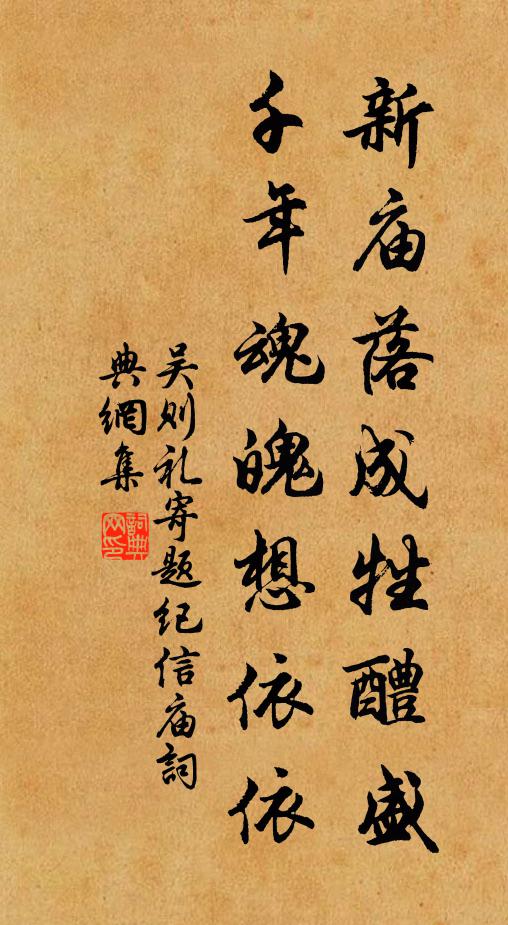 新庙落成牲醴盛
千年魂魄想依依
吴则礼寄题纪信庙詞
典網集
詞典网印